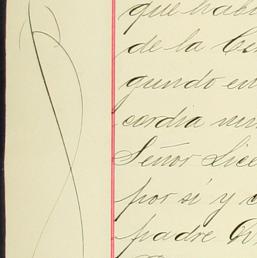 que habi
de la Ciu
gundo en
cordia nu
Señor Lice
por sí y c
padre